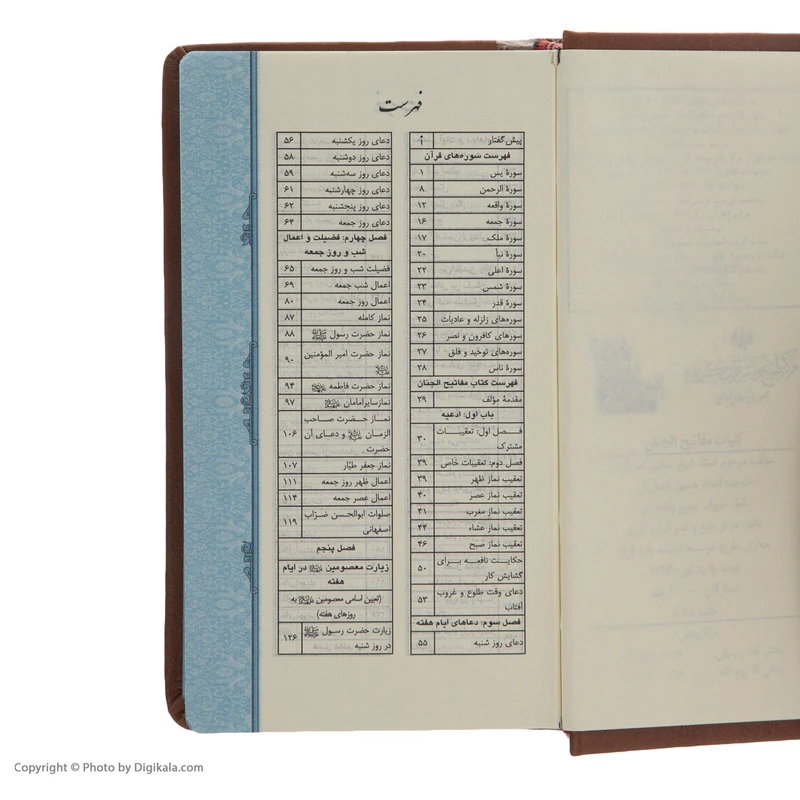 فهرست
پیش گفتار أ
فهرست سوره‌های قرآن
سورهٔ یس ۱
سورهٔ الرحمن ۸
سورهٔ واقعه ۱۲
سورهٔ جمعه ۱۶
سورهٔ ملک ۱۷
سورهٔ نبأ ۲۰
سورهٔ اعلی ۲۲
سورهٔ شمس ۲۳
سورهٔ قدر ۲۴
سوره‌های زلزله و عادیات ۲۵
سورهای کافرون و نصر ۲۶
سوره‌های توحید و فلق ۲۷
سورهٔ ناس ۲۸
فهرست کتاب مفاتیح الجنان
مقدمهٔ مؤلف ۲۹
باب اول: ادعیه
فصل اول: تعقیبات
مشترک ۳۰
فصل دوم: تعقیبات خاص ۳۹
تعقیب نماز ظهر ۳۹
تعقیب نماز عصر ۴۰
تعقیب نماز مغرب ۴۱
تعقیب نماز عشاء ۴۴
تعقیب نماز صبح ۴۶
حکایت نافعه برای
گشایش کار ۵۰
دعای وقت طلوع و غروب
آفتاب ۵۳
فصل سوم: دعاهای ایام هفته
دعای روز شنبه ۵۵
دعای روز یکشنبه ۵۶
دعای روز دوشنبه ۵۸
دعای روز سه‌شنبه ۵۹
دعای روز چهارشنبه ۶۱
دعای روز پنجشنبه ۶۲
دعای روز جمعه ۶۴
فصل چهارم: فضیلت و اعمال
شب و روز جمعه
فضیلت شب و روز جمعه ۶۵
اعمال شب جمعه ۶۹
اعمال روز جمعه ۸۰
نماز کامله ۸۷
نماز حضرت رسول ﷺ ۸۸
نماز حضرت امیر المؤمنین
۹۰
نماز حضرت فاطمه ۹۴
نماز سایر امامان ۹۷
نماز حضرت صاحب
الزمان و دعای آن
حضرت ۱۰۶
نماز جعفر طیّار ۱۰۷
اعمال ظهر روز جمعه ۱۱۱
اعمال عصر جمعه ۱۱۴
صلوات ابوالحسن ضرّاب
اصفهانی ۱۱۹
فصل پنجم
زیارت معصومین در ایام
هفته
(تعیین اسامی معصومین به
روزهای هفته)
زیارت حضرت رسول ﷺ
در روز شنبه ۱۲۶
Copyright © Photo by Digikala.com